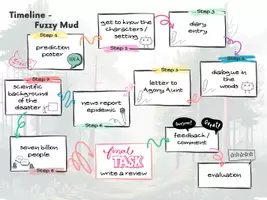 Timeline -
Fuzzy Mud
Step 1
prediction
poster
get to know the
characters /
setting
Step 2
Step 3
diary
entry
scientific
background
of the
disaster
news report
epidemic
Step 6
letter to
Agony Aunt
Step 5
Step 4
dialogue in
the woods
seven billion
people
Step 8
Final
TASK
write a review
feedback /
comment
evaluation